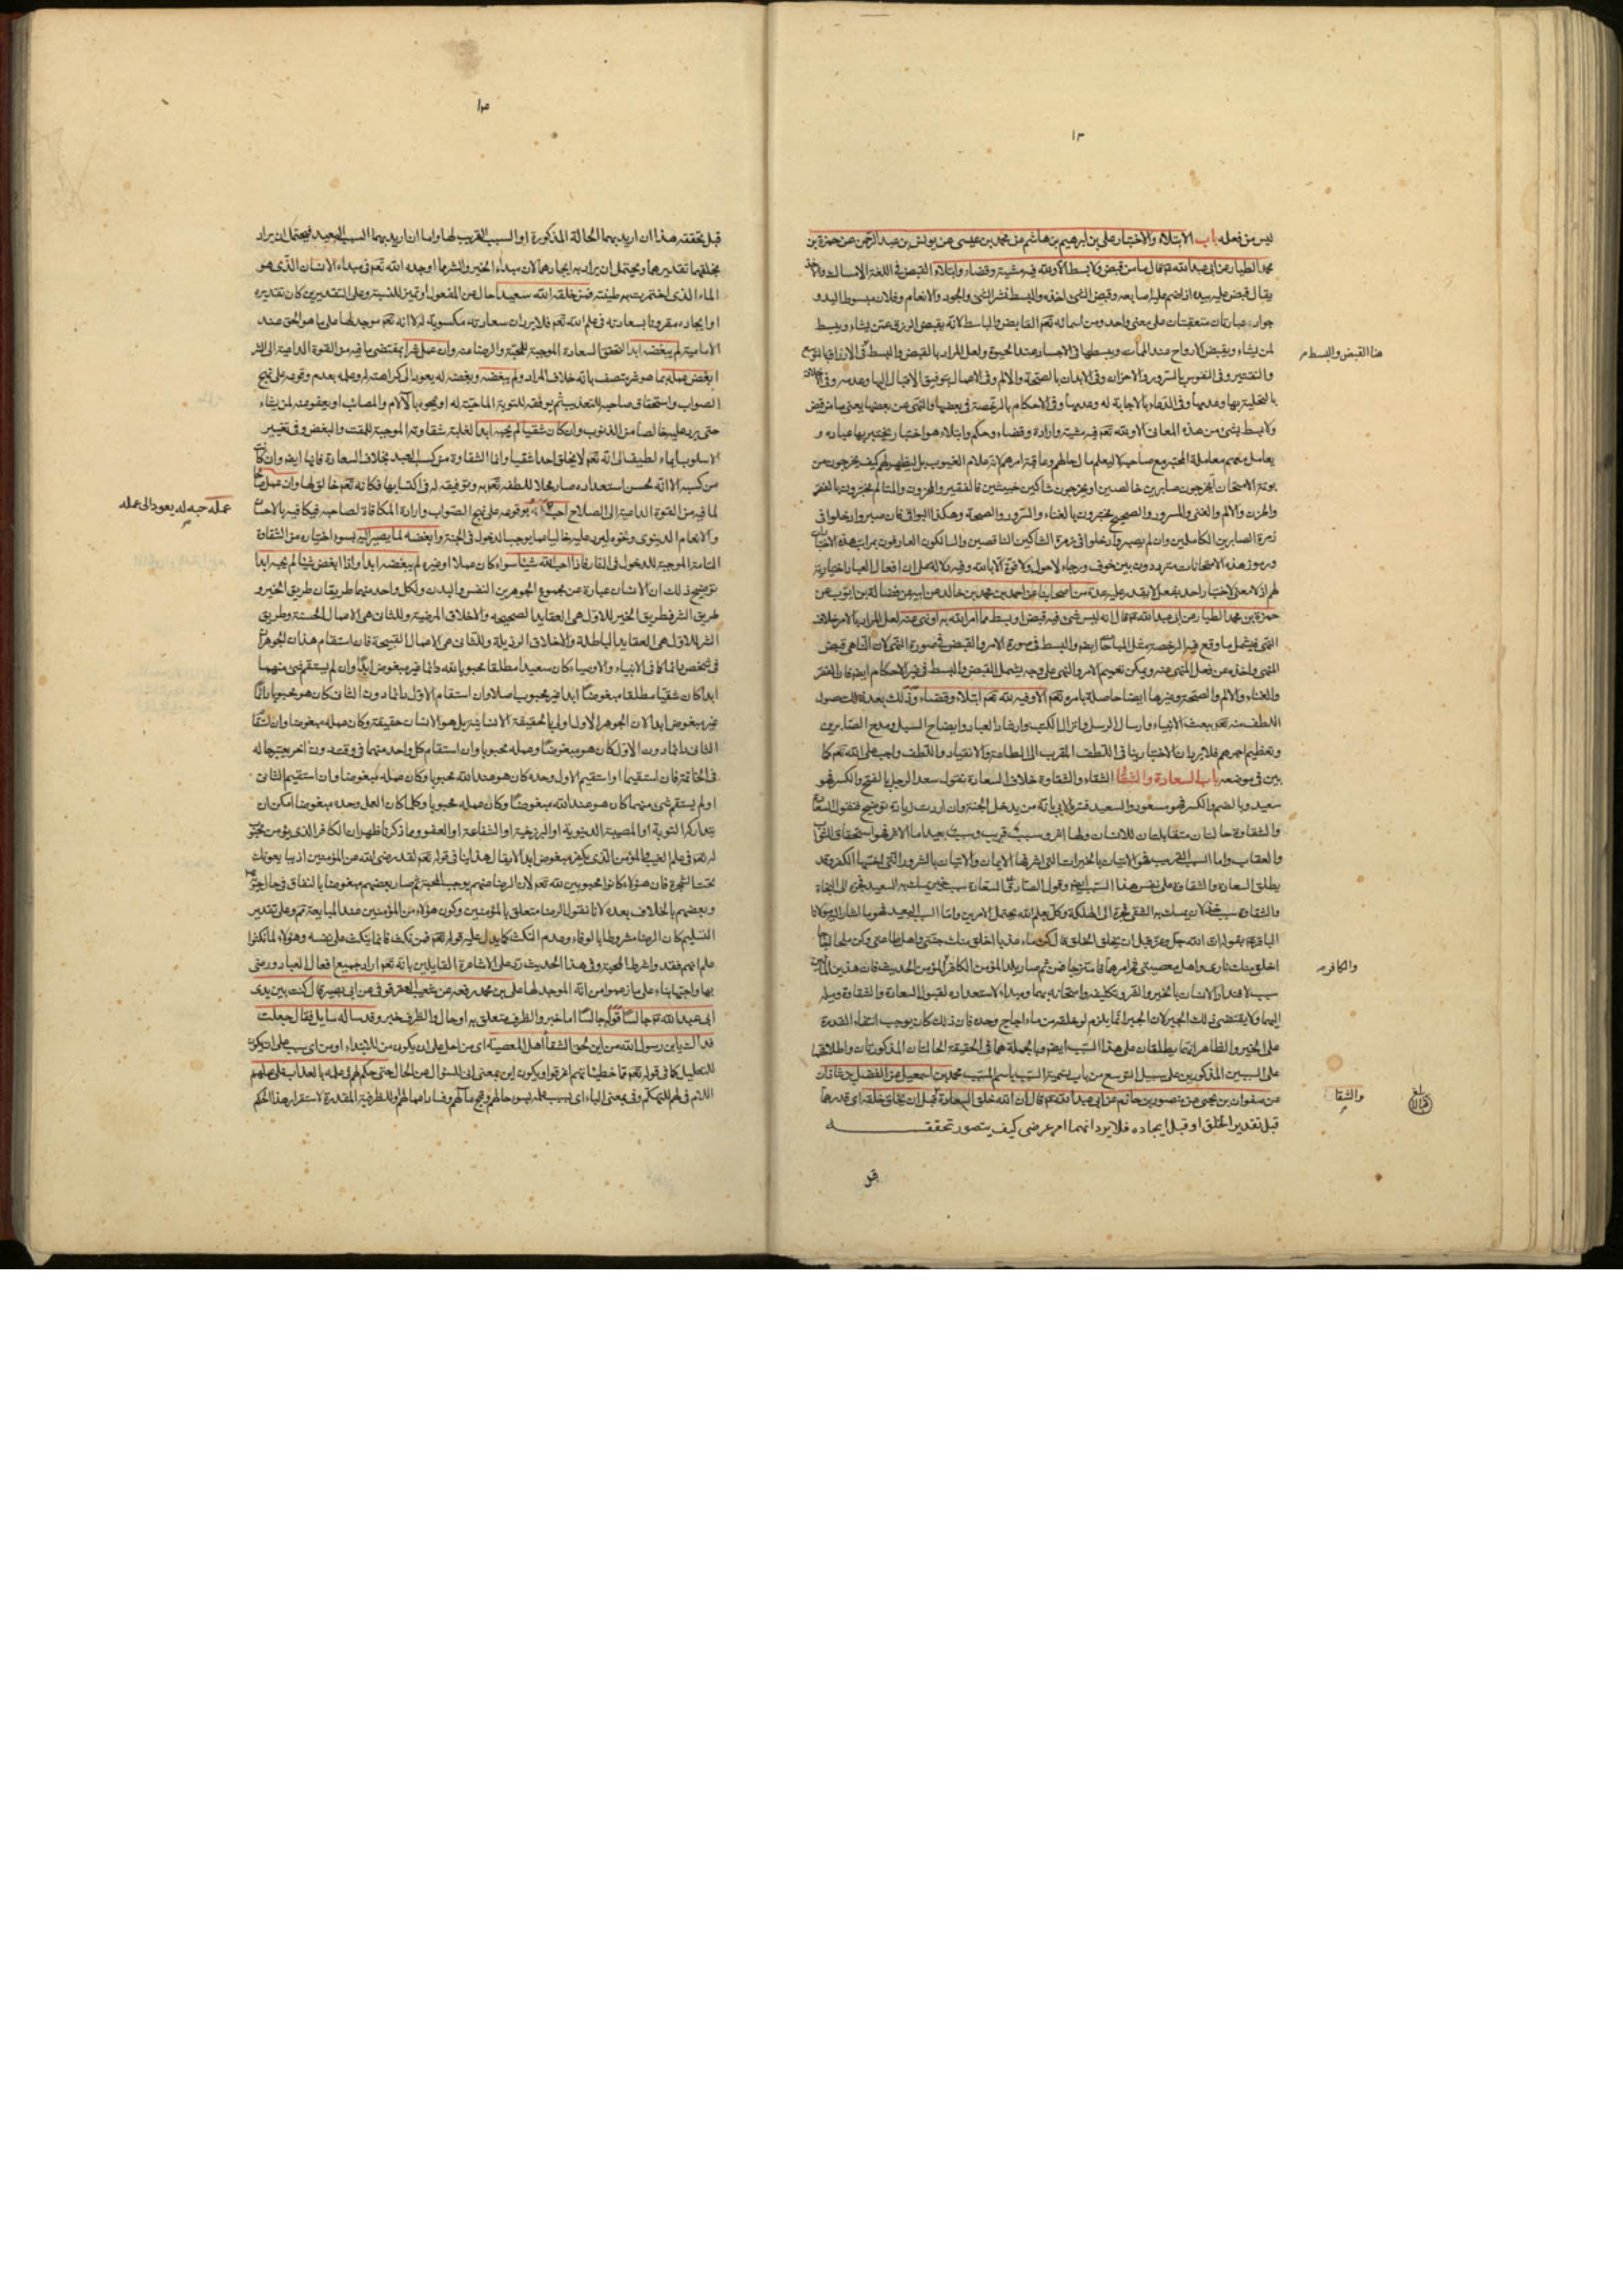 ١٣
ليس من فعله باب الابتلاء والاختبار علي بن ابرهيم بن هاشم عن محمد بن عيسى عن يونس بن عبد الرحمن عن حمزة بن
محمد الطيار عن ابى عبد الله قال ما من قبض ولا بسط الا ولله فيه مشية وقضاء وابتلاء القبض فى اللغة الامساك والاخذ
يقال قبض عليه بيده اذا ضم عليه اصابعه وقبض الشى اخذه والبسط نشر الشى والجود والانعام وفلان مبسوط اليد و
جواد عبارتان متعقبتان على معنى واحد ومن اسمائه تعم القابض والباسط لانه يقبض الرزق عمن يشاء ويبسط
لمن يشاء ويقبض الارواح عند الممات ويبسطها فى الاجساد عند الحيوة ولعل المراد بالقبض والبسط فى الارزاق بالتوسع
هنا القبض والبسط
والتقتير وفى النفوس بالسرور والاحزان وفى الابدان بالصحة والالم وفى الاعمال بتوفيق الاقبال اليها وعدمه وفى
بالتحلية بها وعدمها وفى الدعاء بالاجابة له وعدمها وفى الاحكام بالرخصة فى بعضها والنهى عن بعضها يعنى ما من قبض
ولا بسط بشى من هذه المعانى الا ولله تعم فيه مشية وارادة وقضاء وحكم وابتلاء هو اختبار يختبر بها عباده و
يعامل معهم معاملة المختبر مع صاحبه لا ليعلم مال حالهم وعاقبة امرهم لانه علام الغيوب بل ليظهر لهم كيف يخرجون من
بوتة الامتحان يخرجون صابرين خالصين او يخرجون شاكين خبيثين فالفقير والمحزون والمتالم مختبرون بالفقر
والحزن والالم والغنى والمسرور والصحيح مختبرون بالغناء والسرور والصحة وهكذا البواقى فان صبروا دخلوا فى
زمرة الصابرين الكاملين وان لم يصبروا دخلوا فى زمرة الشاكين الناقصين والسالكون العارفون بمراتب هذه
ورموز هذه الامتحانات مترددون بين خوف ورجاء لاحول ولا قوة الا بالله وفيه دلالة على ان افعال العباد اختيارية
لهم اذ لا معنى لاختبار احد بفعل لا يقدر عليه عدة من اصحابنا عن احمد بن محمد بن خالد عن ابيه عن فضالة بن ايوب عن
حمزة بن محمد الطيار عن ابى عبد الله قال انه ليس شى فيه قبض او بسط مما امر الله به او نهى عنه لعل المراد بالامر خلاف
النهى فيشمل ما وقع فيه الرخصة مثل المباحات ايض والبسط فى صورة الامر والقبض فى صورة النهى لان الناهى قبض
المنهى واخذه عن فعل المنهى عنه ويمكن تعميم الامر والنهى على وجه يشمل القبض والبسط فى غير الاحكام ايض فان الفقر
والغناء والالم والصحة وغيرها ايضا حاصلة بامره تعم الا وفيه لله تعم ابتلاء وقضاء وذلك بعد حصول
اللطف منه تعم ببعث الانبياء وارسال الرسل وانزال الكتب وارشاد العباد وايضاح السبل ومدح الصابرين
وتعظيم اجرهم فلا يرد ان الاختبار ينافى اللطف المقرب الى الطاعة والانقياد واللطف واجب على الله تعم كما
بين فى موضعه باب السعادة والشقا الشقاء والشقاوة خلاف السعادة تقول سعد الرجل بالفتح والكسر فهو
سعيد وبالضم والكسر فهو مسعود والسعيد فسره الابى بانه من يدخل الجنة وان اردت زيادة توضيح فنقول السعادة
والشقاوة حالتان متقابلتان للانسان ولهما اثر وسبب قريب وسبب بعيد اما الاثر فهو استحقاق الثواب
والعقاب واما السبب القريب فهو الاتيان بالخيرات التى اشرفها الايمان والاتيان بالشرور التى اخبثها الكفر وقد
يطلق السعادة والشقاوة على نفس هذا السبب ايض وقول الصادق السعادة سبب خير يمسك به السعيد فيجره الى النجاة
والشقاوة سبب خذلان يمسك به الشقى فيجره الى الهلكة وكل بعلم الله يحتمل الامرين واما السبب البعيد فهو ما اشار اليه مولانا
الباقر بقوله ان الله جل وعز قبل ان يخلق الخلق قال كن ماء عذبا اخلق منك جنتى واهل طاعتى وكن ملحا اجاجا
اخلق منك نارى واهل معصيتى ثم امرهما فامتزجا فمن ثم صار يلد المؤمن الكافر المؤمن الحديث فان هذين المائين
والكافر
سبب لاقتدار الانسان بالخير والشر وتكليفه وامتحانه بهما ومبداء لاستعداده لقبول السعادة والشقاوة وميله
اليهما ولا يقتضى ذلك الجبر لان الجبر انما يلزم لو خلقه من ماء اجاج وحده فان ذلك كان يوجب انتفاء القدرة
على الخير والظاهر انهما يطلقان على هذا السبب ايض وبالجملة هما فى الحقيقة الحالتان المذكورتان واطلاقهما
على السببين المذكورين على سبيل التوسع من باب تسمية السبب باسم المسبب محمد بن اسمعيل عن الفضل بن شاذان
عن صفوان بن يحيى عن منصور بن حازم عن ابى عبد الله قال ان الله خلق السعادة قبل ان يخلق خلقه اى قدرهما
والشقا
بلغ
قبل تقدير الخلق او قبل ايجاده فلا يرد انهما امر عرضى كيف يتصور تحققه
قبل
١٣
قبل تحققه هذا ان اريد بهما الحالة المذكورة او السبب القريب لها واما ان اريد بهما السبب البعيد فيحتمل ان يراد
بخلقهما تقديرهما ويحتمل ان يراد به ايجادهما لان مبداء الخير والشر مما اوجده الله تعم فى مبداء الانسان الذى هو
الماء الذى اختمرت به طينته فمن خلقه الله سعيدا حال عن المفعول او تميز للنسبة وعلى التقديرين كان تقديره
او ايجاده مقرونا بسعادته فى علم الله تعم فلا يرد ان سعادته مكسوبة له لا انه تعم موجد لها على ما هو الحق عند
الامامية لم يبغضه ابدا لتحقق السعادة الموجبة للمحبة والرضا منه وان عمل شرا بمقتضى ما فيه من القوة الداعية الى الشر
ابغض عمله بما هو شر يتصف بانه خلاف المراد ولم يبغضه وبغضه له يعود الى كراهته له وعلمه بعدم وقوعه على نهج
الصواب واستحقاق صاحبه للتعذيب ثم يوفقه للتوبة الماحية له او يمحوه بالآلام والمصائب او يعفو عنه لمن يشاء
حتى يرد عليه خالصا من الذنوب وان كان شقيا لم يحبه ابدا لغلبة شقاوته الموجبة للمقت والبغض وفى تغيير
الاسلوب ايماء لطيف الى انه تعم لا يخلق احدا شقيا وانما الشقاوة من كسب العبد بخلاف السعادة فانها ايضا وان كان
من كسبه الا انه لحسن استعداده صار محلا للطفه تعم به وتوفيقه له فى اكتسابها فكانه تعم خالق لها وان عمل صالحا
لما فيه من القوة الداعية الى الصلاح احب بوقوعه على نهج الصواب وارادة المكافاة لصاحبه فيكافيه بالاحسان
عمله حبه له يعود الى عمله
والانعام الدنيوى ونحوه ليرد عليه خاليا مما يوجب الدخول فى الجنة وابغضه لما يصير اليه بسوء اختياره من الشقاوة
التامة الموجبة للدخول فى النار فاذا احب الله شيئا سواء كان عملا او غيره لم يبغضه ابدا واذا ابغض شيئا لم يحبه ابدا
توضيح ذلك ان الانسان عبارة عن مجموع الجوهرين النفس والبدن ولكل واحد منهما طريقان طريق الخير و
طريق الشر فطريق الخير للاول هى العقايد الصحيحة والاخلاق المرضية وللثانى هى الاعمال الحسنة وطريق
الشر للاول هى العقايد الباطلة والاخلاق الرذيلة وللثانى هى الاعمال القبيحة فان استقام هذان الجوهران
فى شخص دائما كما فى الانبياء والاوصياء كان سعيدا مطلقا محبوبا لله دائما غير مبغوض ابدا وان لم يستقم شى منهما
ابدا كان شقيا مطلقا مبغوضا ابدا غير محبوب اصلا وان استقام الاول دائما دون الثانى كان هو محبوبا دائما
غير مبغوض ابدا لان الجوهر الاول اولى بالحقيقة الانسانية بل هو الانسان حقيقة وكان عمله مبغوضا وان استقام
الثانى دائما دون الاول كان هو مبغوضا وعمله محبوبا وان استقام كل واحد منهما فى وقت دون اخر يعتبر حاله
فى الخاتمة فان استقيما او استقيم الاول وحده كان هو عند الله محبوبا وكان عمله مبغوضا وان استقيم الثانى
او لم يستقم شى منهما كان هو عند الله مبغوضا وكان عمله محبوبا وكلما كان العمل وحده مبغوضا امكن ان
يتداركه التوبة او المصيبة الدنيوية او البرزخية او الشفاعة او العفو ومما ذكرنا ظهر ان الكافر الذى يؤمن محبوب
له تعم فى علم الغيب والمؤمن الذى يكفر مبغوض ابدا لا يقال هذا ينافى قوله تعم لقد رضى الله عن المؤمنين اذ يبايعونك
تحت الشجرة فان هؤلاء كانوا محبوبين لله تعم لان الرضا عنهم يوجب المحبة ثم صار بعضهم مبغوضا بالنفاق فى حال
وبعضهم بالخلاف بعده لانا نقول الرضا متعلق بالمؤمنين وكون هؤلاء من المؤمنين عند المبايعة ثم وعلى تقدير
التسليم كان الرضا مشروطا بالوفاء وعدم النكث كما يدل عليه قوله تعم فمن نكث فانما ينكث على نفسه وهؤلاء لما نكثوا
علم انهم فقدوا شرط المحبة وفى هذا الحديث رد على الاشاعرة القايلين بانه تعم اراد جميع افعال العباد ورضى
بها واحبها بناء على ما زعموا من انه الموجد لها على بن محمد رفعه عن شعيب العقرقوفى عن ابى بصير قال كنت بين يدى
ابى عبد الله جالسا قوله جالسا اما خبر والظرف متعلق به او حال والظرف خبر وقد ساله سايل فقال جعلت
فداك يابن رسول الله من اين لحق الشقاء اهل المعصية اى من اجل على ان يكون من للابتداء او من اى سبب على ان يكون
للتعليل كما فى قوله تعم مما خطيئاتهم اغرقوا ويكون اين بمعنى اى للسؤال عن الحال حتى حكم لهم فى علمه بالعذاب على عملهم
اللام فى لهم للتهكم وفى بمعنى الباء اى بسبب علمه بسوء حالهم وقبح مآلهم وفساد اعمالهم والظرفية المقدرة لاستقرار هذا الحكم